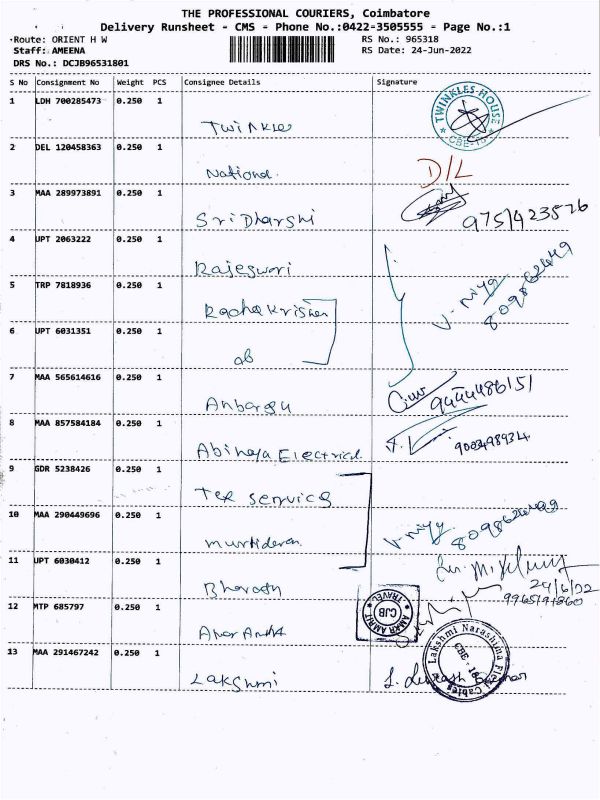 THE PROFESSIONAL COURIERS, Coimbatore
Delivery Runsheet - CMS - Phone No.:0422-3505555 - Page No.:1
Route: ORIENT H W
RS No.: 965318
Staff: AMEENA
RS Date: 24-Jun-2022
DRS No.: DCJB96531801
S No Consignment No Weight PCS Consignee Details Signature
1 LDH 700285473 0.250 1
Twinkles
TWINKLES HOUSE
CBE-18
2 DEL 120458363 0.250 1
National
D/L
3 MAA 289973891 0.250 1
Sri Dharshi
9751423526
4 UPT 2063222 0.250 1
Rajeswari
5 TRP 7818936 0.250 1
Radhakrishan
8098626449
6 UPT 6031351 0.250 1
ab
7 MAA 565614616 0.250 1
Anbaragu
9444486151
8 MAA 857584184 0.250 1
Abinaya Electrical
9003498934
9 GDR 5238426 0.250 1
Tex Services
10 MAA 290449696 0.250 1
8098626449
11 UPT 6030412 0.250 1
Bharath
24/6/22
9965191860
12 MTP 685797 0.250 1
AMAR AMRIT
CJB
TRAVEL
13 MAA 291467242 0.250 1
Lakshmi
Lakshmi Narashima Flex
CBE - 18
Cables